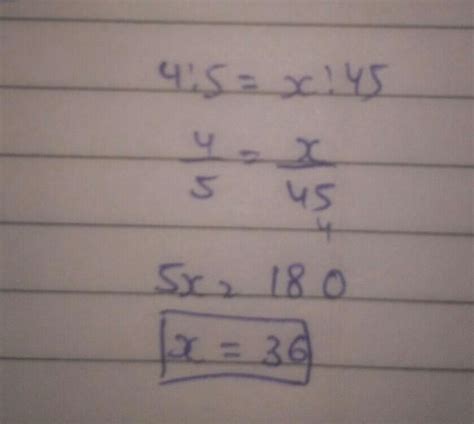 4:5 = x:45
4/5 = x/45
4
5x = 180
x = 36